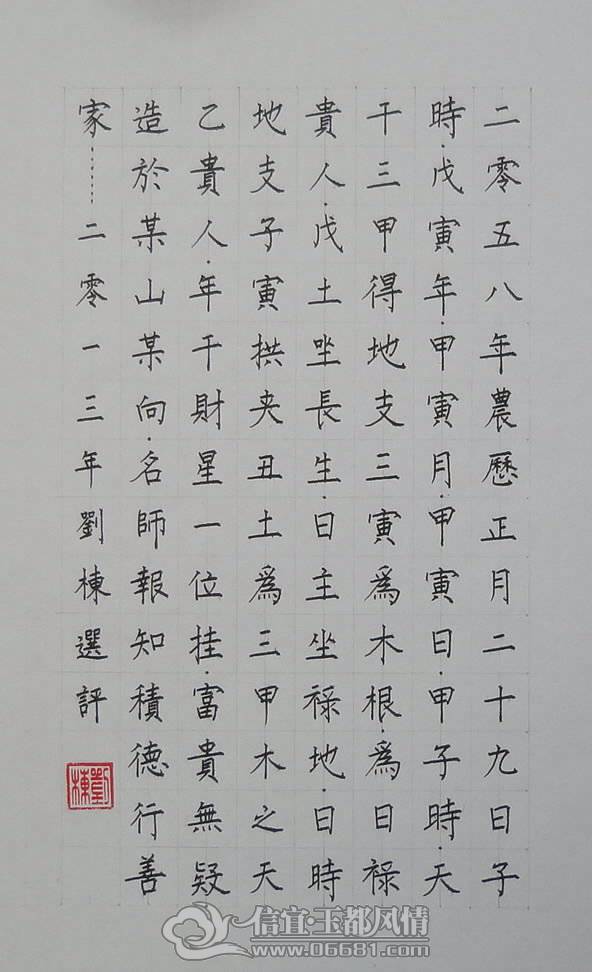 二零五八年農歷正月二十九日子
時·戊寅年·甲寅月·甲寅日·甲子時·天
干三甲得地支三寅爲木根·爲日祿
貴人·戊土坐長生·日主坐祿地·日時
地支子寅拱夹丑土爲三甲木之天
乙貴人·年干財星一位挂·富貴無疑
造於某山某向·名師報知積德行善
家……二零一三年劉棟選評
劉棟
信宜·玉都风情
www.06681.com